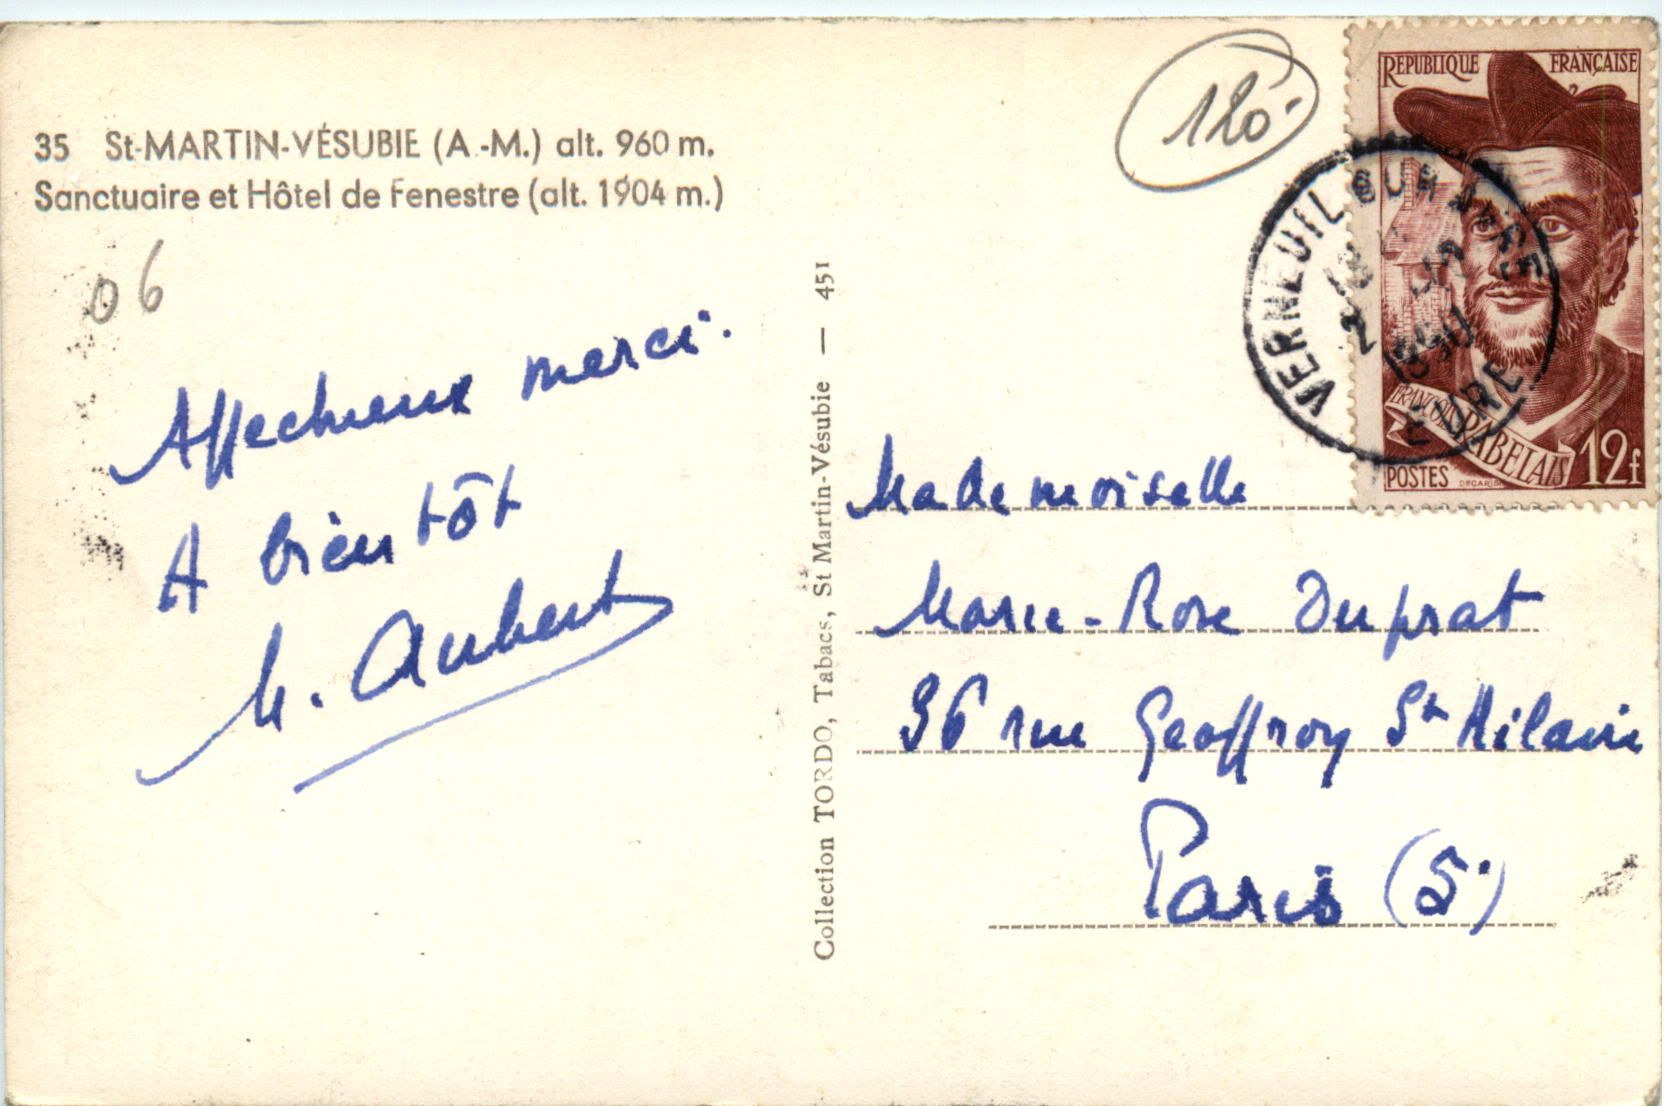 35 St-MARTIN-VÉSUBIE (A.-M.) alt. 960 m.
Sanctuaire et Hôtel de Fenestre (alt. 1904 m.)
06
Affectueux merci.
A bientôt
M. Aubert
Collection TORDO, Tabacs, St Martin-Vésubie — 451
120.-
REPUBLIQUE FRANÇAISE
FRANÇOIS RABELAIS
POSTES DECARIS 12f
VERNEUIL
EURE
Mademoiselle
Marie-Rose Duprat
36 rue Geoffroy St Hilaire
Paris (5.)